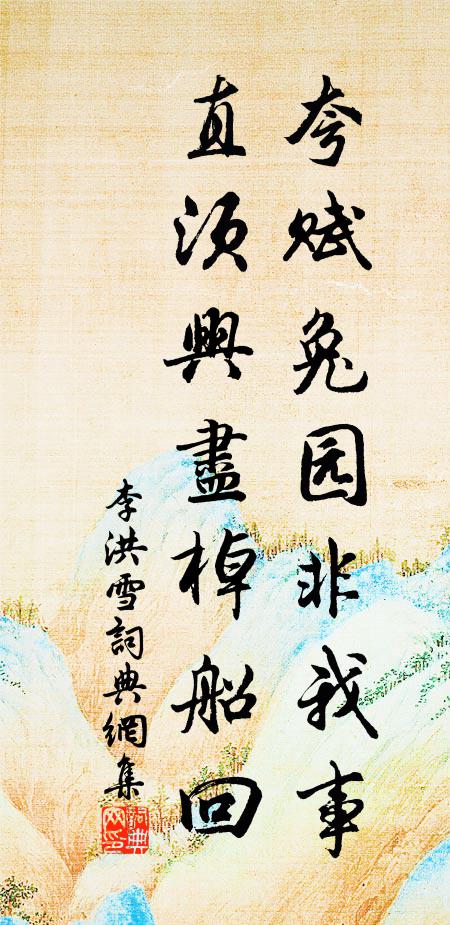 夸赋兔园非我事
直须興盡棹船回
李洪雪詞典網集
詞典網印